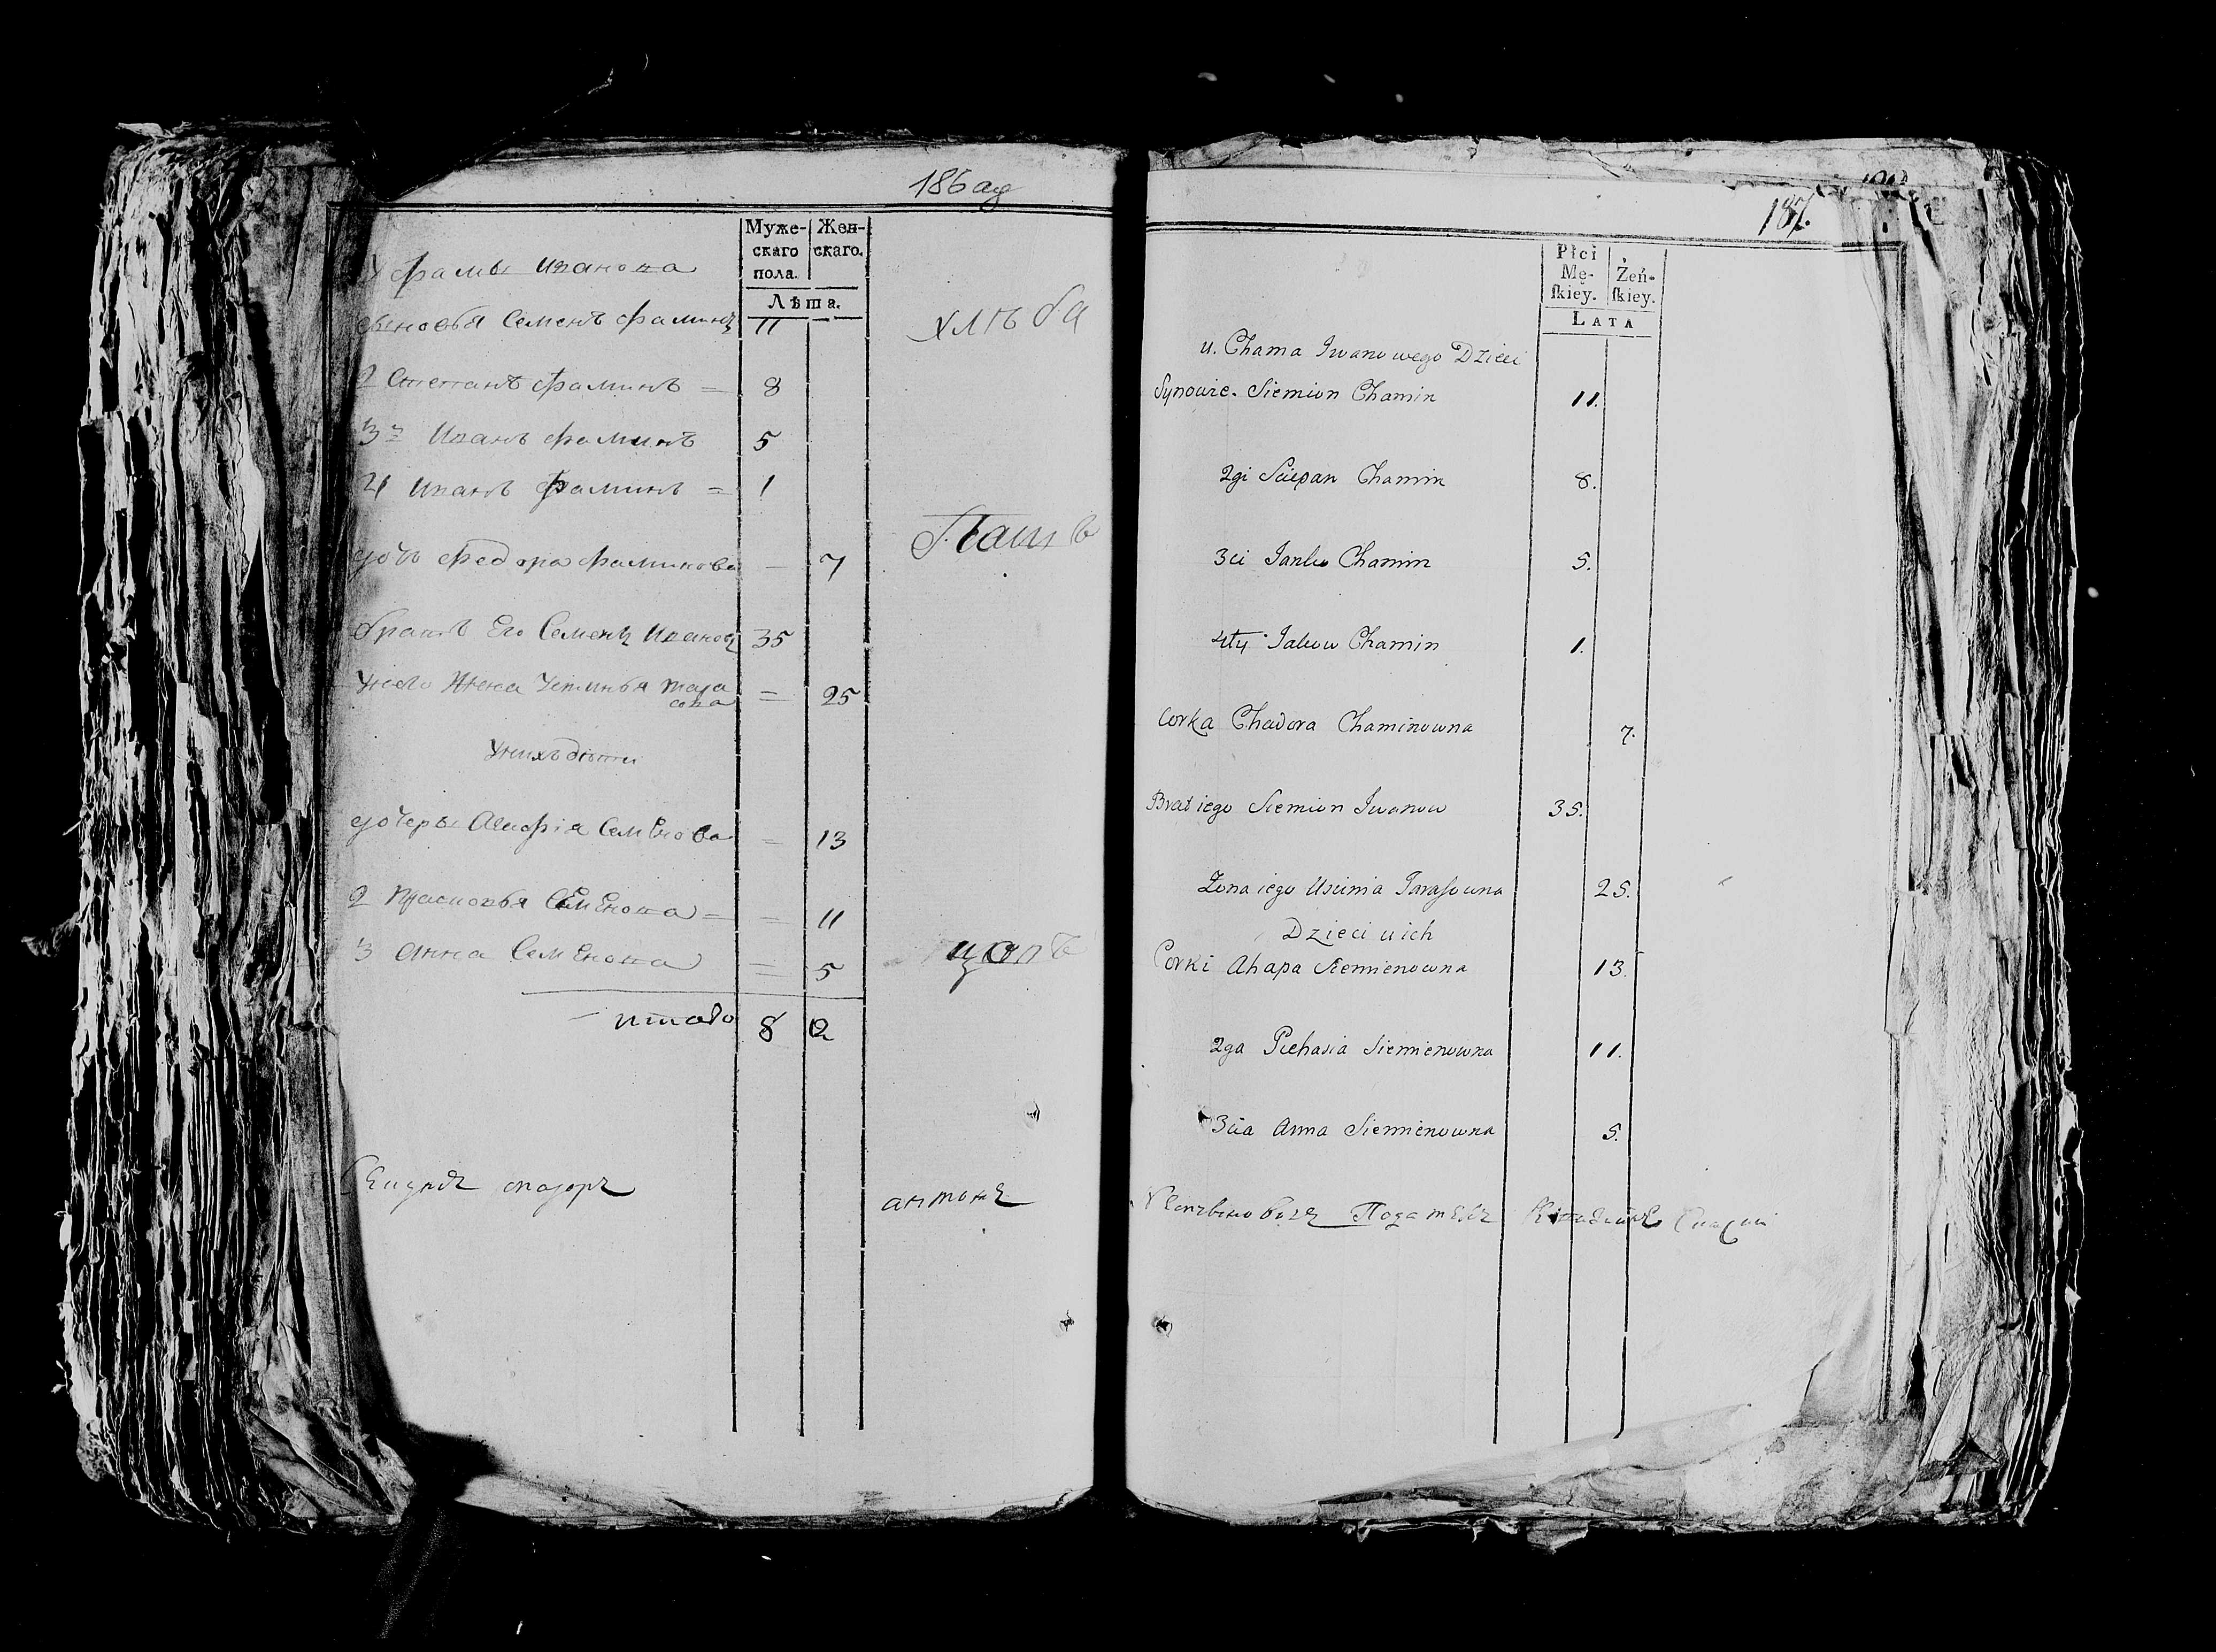 186 ад
Муже-
скаго
пола.
Жен-
скаго.
Лѣта.
У фамы Иванова
сыновья Семенъ фаминъ 11
хлѣба
2 Степанъ фаминъ = 8
3й Иванъ фаминъ 5
4 Иванъ фаминъ = 1
дочь федора фаминова — 7
братъ Его Семенъ Иванов 35
Унего Жена Устинья тара
сова = 25
Унихъ дѣти
дочеры Агафія Семенова = 13
2 Прасковья Семенова = = 11
3 Анна Семенова = 5
итого 8 12
маіоръ
антонъ
187.
Płci
Mę-
ſkiey.
Żeń-
ſkiey.
LATA
u. Chama Iwanowego Dzieci
Synowie. Siemion Chamin 11.
2gi Sciepan Chamin 8.
3ci Janko Chamin 5.
4ty Jakow Chamin 1.
Corka Chadora Chaminowna 7.
Brat iego Siemion Iwanow 35.
Żona iego Uscinia Tarasowna 25.
Dzieci u ich
Corki Ahapa Siemienowna 13.
2ga Pichasia Siemienowna 11.
3cia Anna Siemienowna 5.